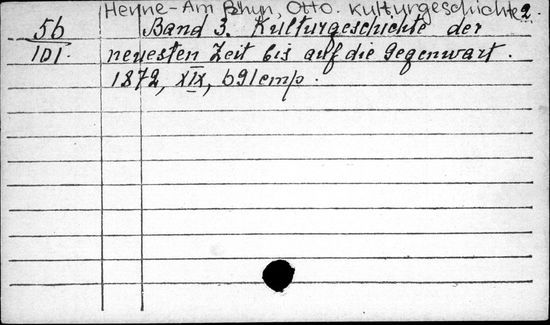 Heyne-Am Rhyn, Otto. Kulturgeschichte 2.
56 Band 3. Kulturgeschichte der
101 neuesten Zeit bis auf die Gegenwart.
1872, XIX, 691 стр.